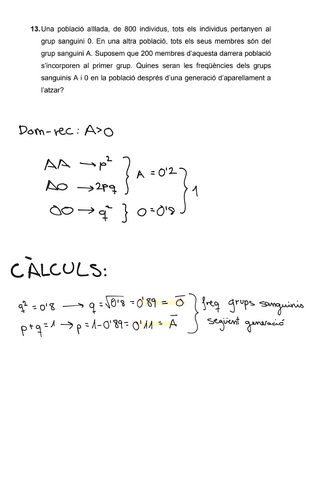 13. Una població aïllada, de 800 individus, tots els individus pertanyen al
grup sanguini 0. En una altra població, tots els seus membres són del
grup sanguini A. Suposem que 200 membres d'aquesta darrera població
s'incorporen al primer grup. Quines seran les freqüències dels grups
sanguinis A i 0 en la població després d'una generació d'aparellament a
l'atzar?
Dom-rec: A>O
AA → p²
AO → 2pq } A = 0'2
OO → q² } O = 0'8 } 1
CÀLCULS:
q² = 0'8 → q = √0'8 = 0'89 = O } freq grups sanguinis
p+q = 1 → p = 1-0'89 = 0'11 = A següent generació